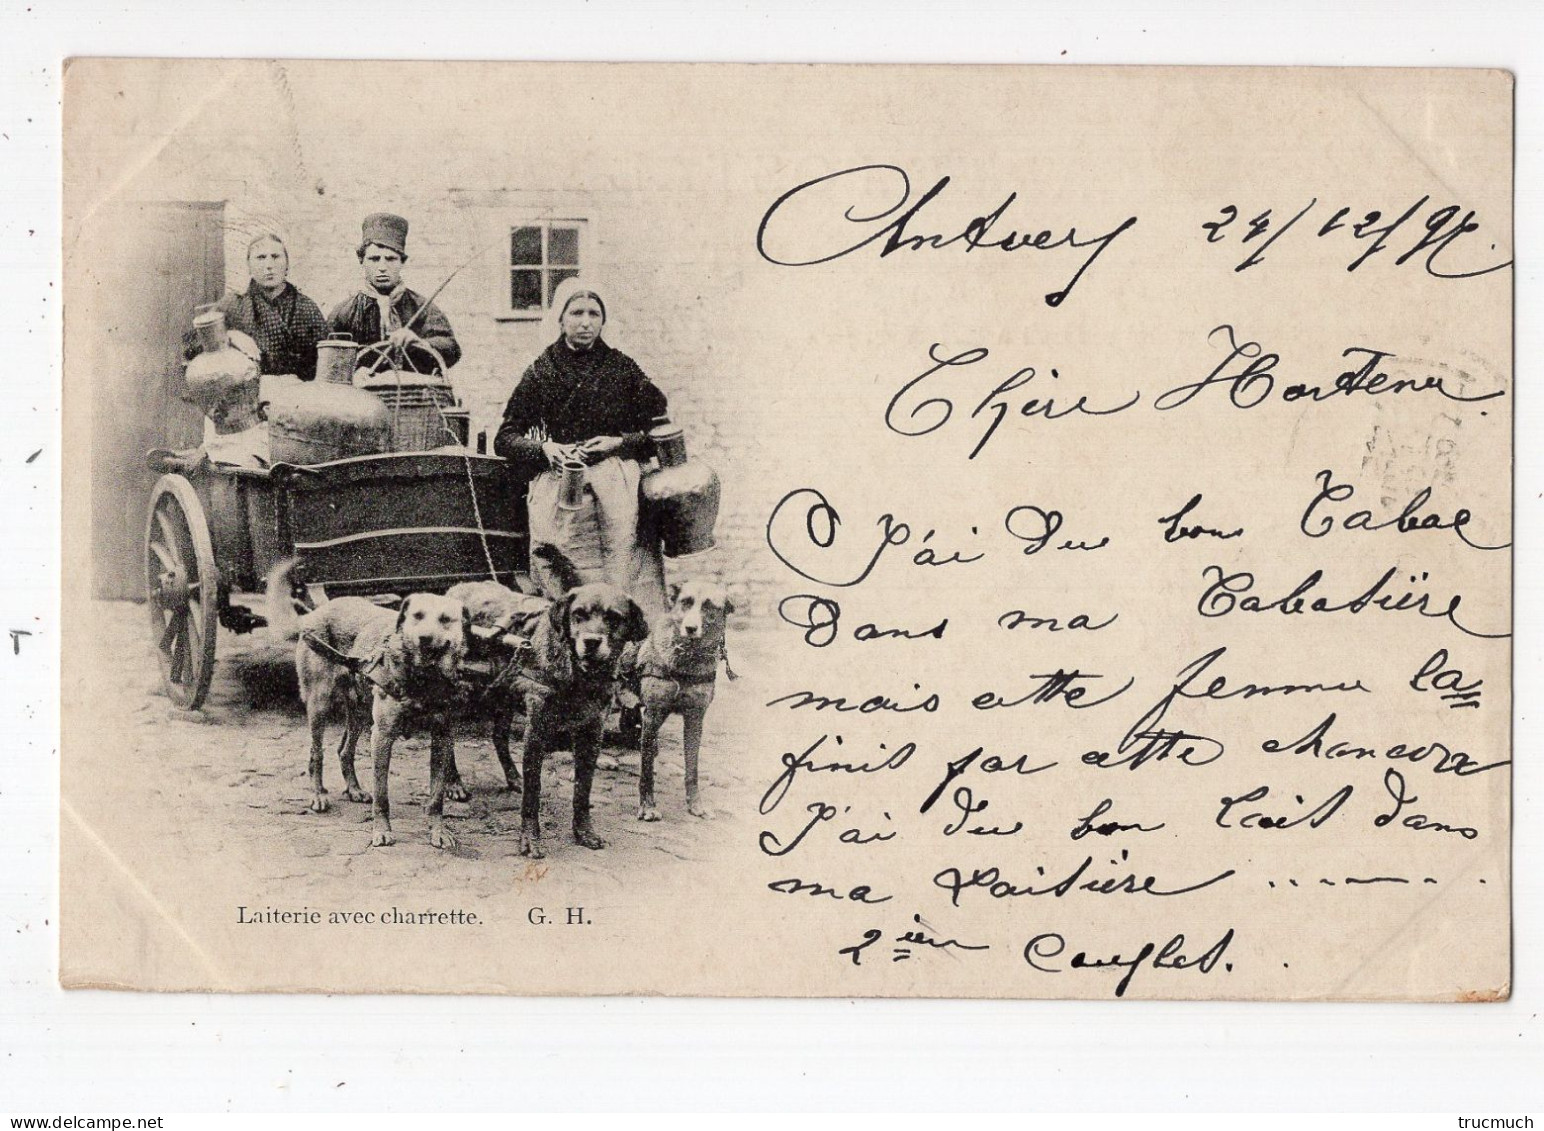 Antverp 24/12/98.
Chère Hortense.
J'ai du bon Tabac
Dans ma Tabatière
mais cette femme la
finit par cette chancon
J'ai du bon Lait dans
ma Laitière ........
2ièm Couplet.
Laiterie avec charrette. G. H.
trucmuch - delcampe.net